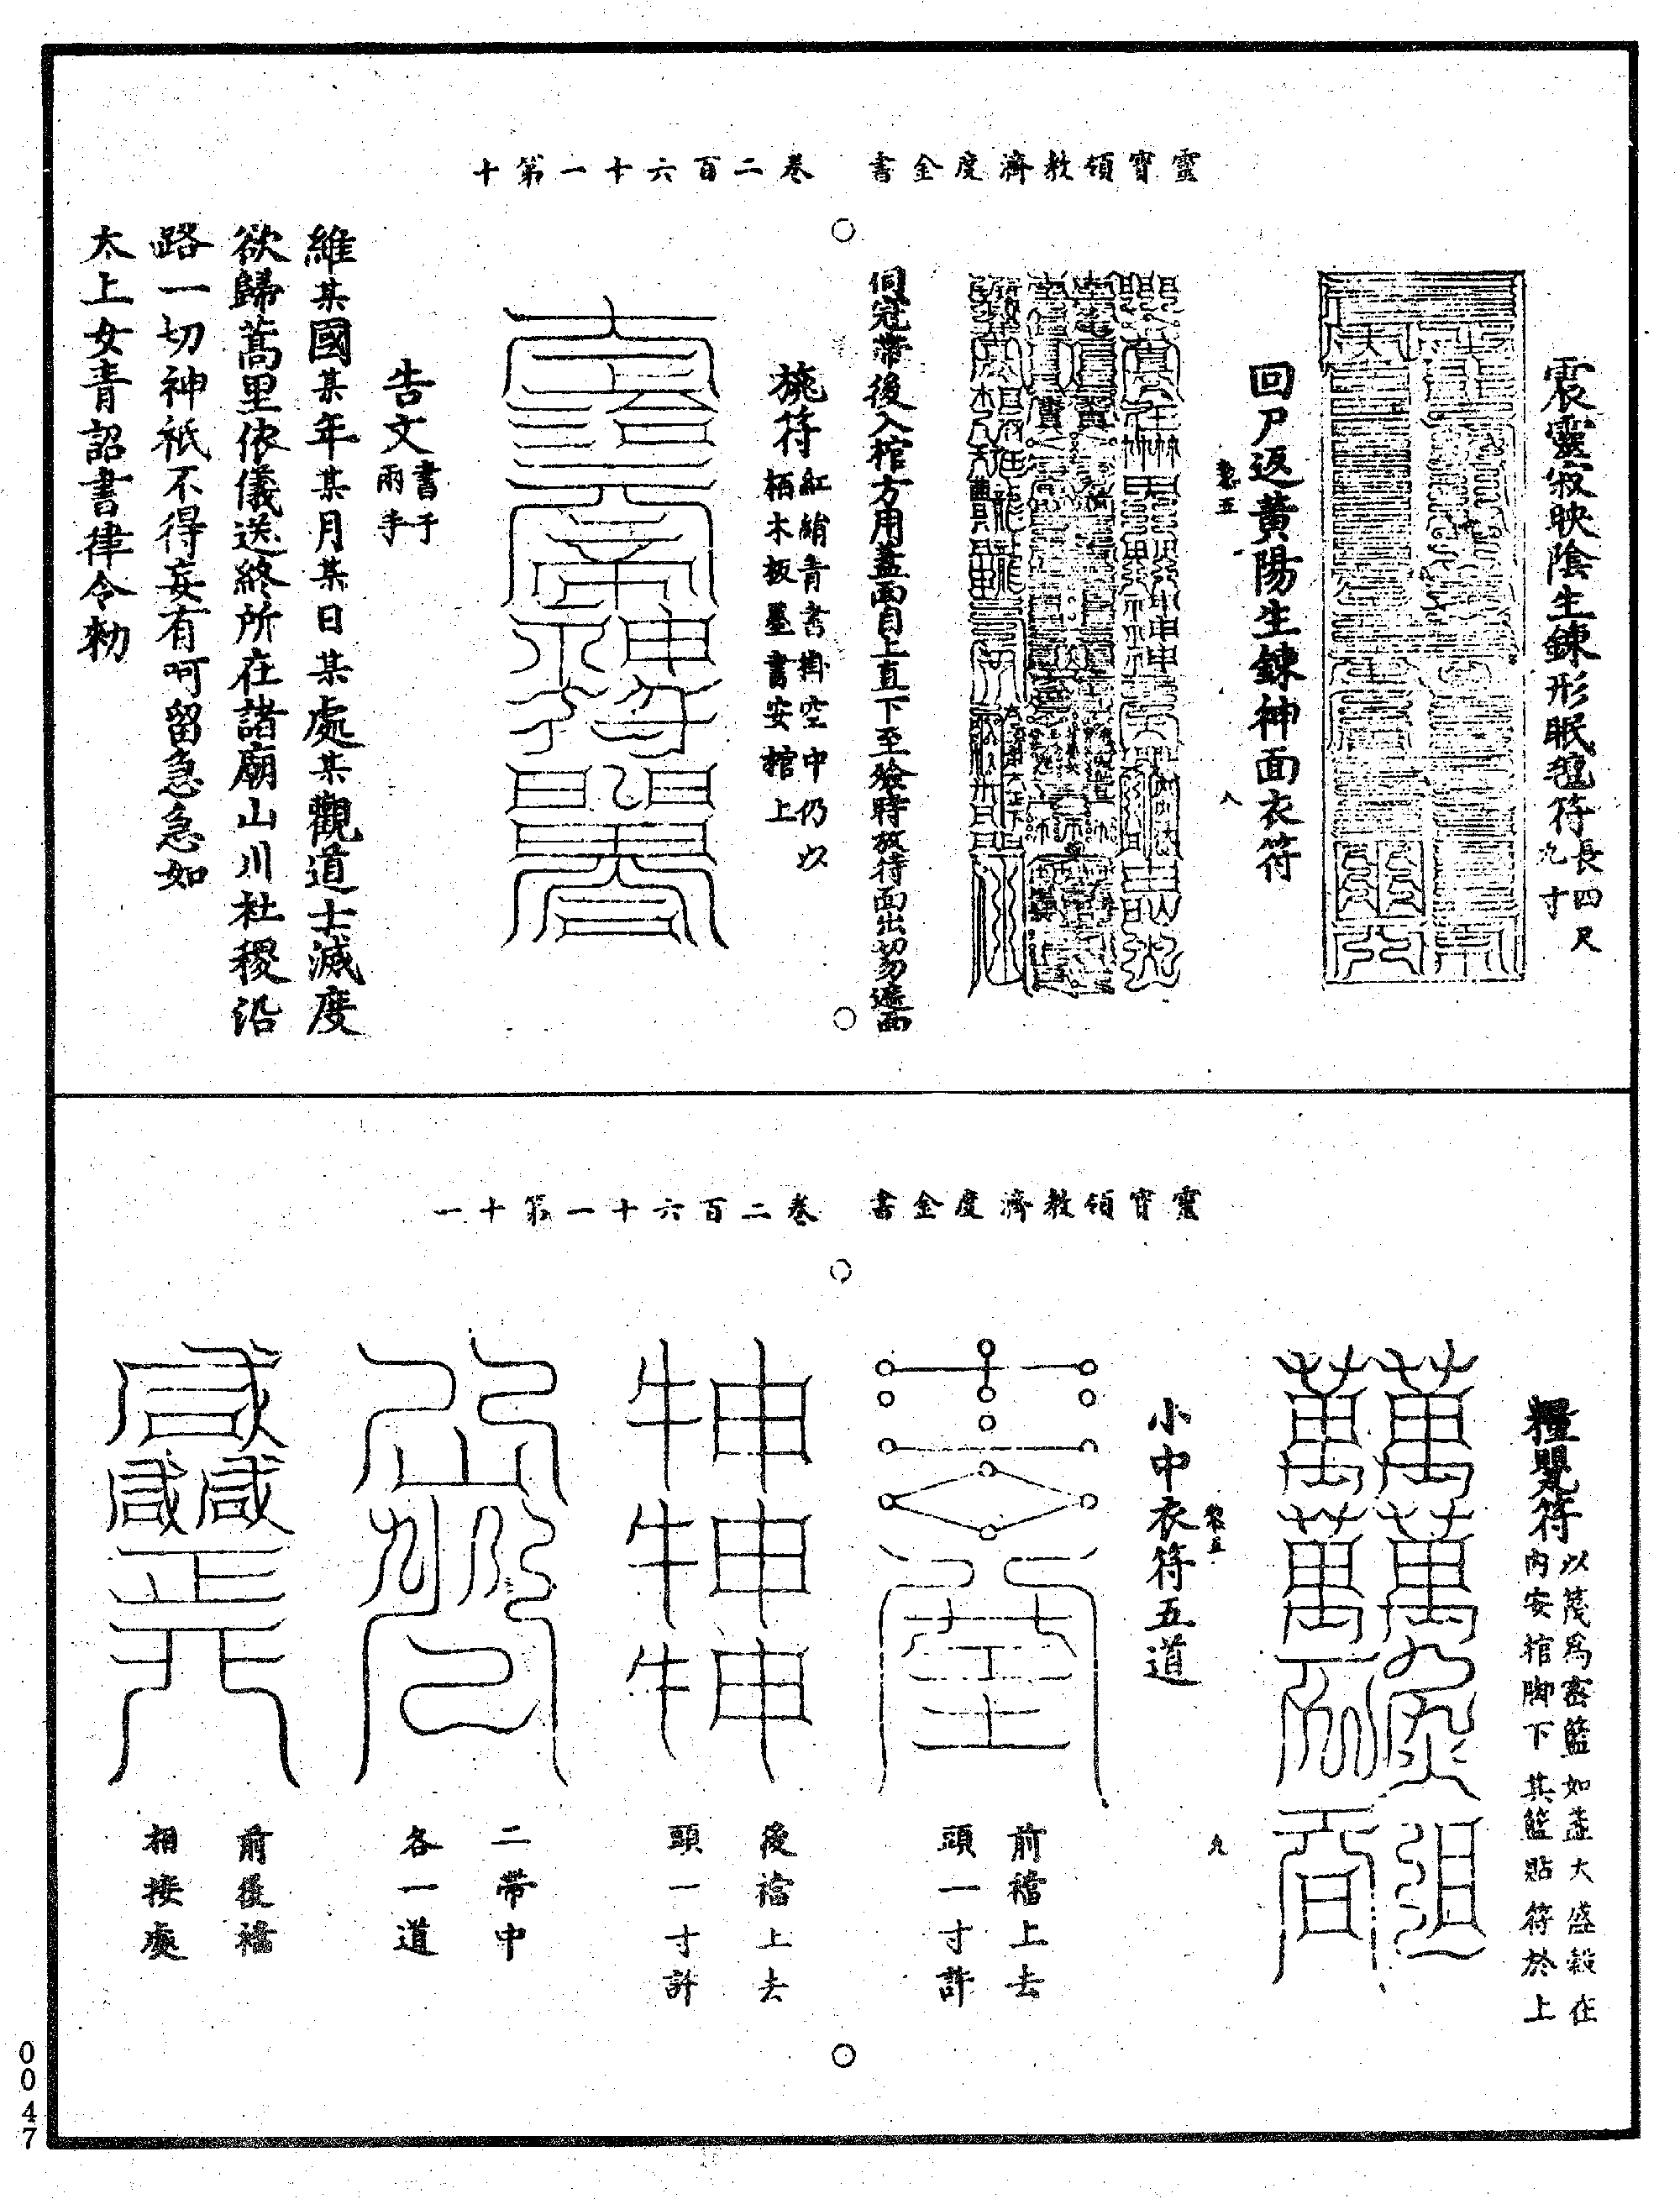 靈寶領教濟度金書　卷二百六十一第十
震靈寂映陰生鍊形眠㲲符長四尺
九寸
回尸返黃陽生鍊神面衣符
八
伺冠帶後入棺方用蓋面自上直下至殮時放待面出切勿遮面
旐符紅絹青書掛空中仍以
栢木板墨書安棺上
告文書于
兩手
維某國某年某月某日某處某觀道士滅度
欲歸蒿里依儀送終所在諸廟山川社稷沿
路一切神祇不得妄有呵留急急如
太上女青詔書律令勑
靈寶領教濟度金書　卷二百六十一第十一
糧甖符以篾爲密籃如盞大盛穀在
內安棺脚下其籃貼符於上
九
小中衣符五道
前襠上去
頭一寸許
後襠上去
頭一寸許
二帶中
各一道
前後襠
相接處
0047